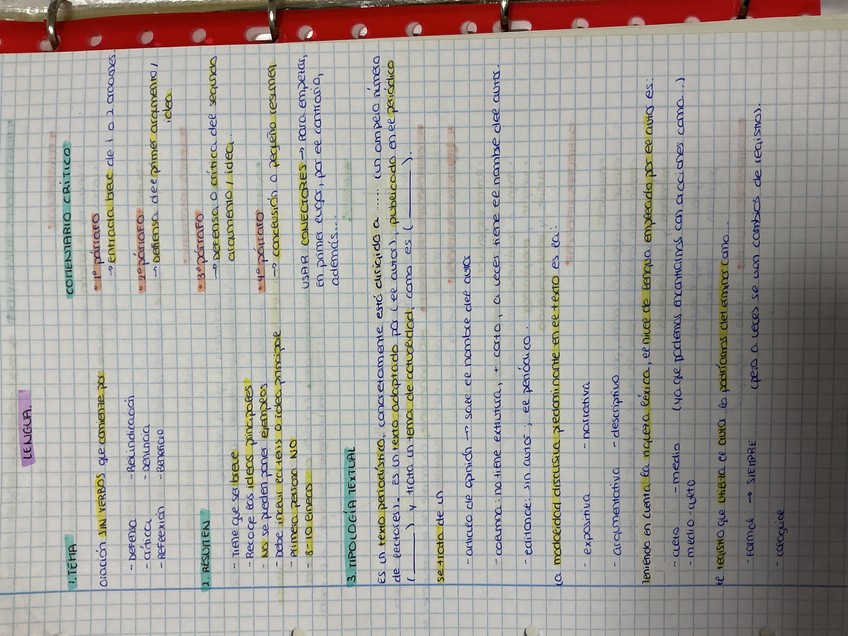 LENGUA
1. TEMA
oración SIN VERBOS que comience por:
- Defensa - Reivindicación
- crítica - Denuncia
- Reflexión - Beneficio
2. RESUMEN
- Tiene que ser breve
- Recoge las ideas principales
- No se pueden poner ejemplos
- Debe incluir la tesis o idea principal
- Primera persona NO
- 8-10 líneas
COMENTARIO CRÍTICO
· 1º párrafo
→ Entrada breve de 1 o 2 oraciones.
· 2º párrafo
→ Defensa del primer argumento /
idea
· 3º párrafo
→ Defensa o crítica del segundo
argumento / idea
· 4º párrafo
→ conclusión o pequeño resumen
USAR CONECTORES → Para empezar,
en primer lugar, por el contrario,
además...
3. TIPOLOGÍA TEXTUAL
Es un texto periodístico, concretamente está dirigido a ...... (un amplio número
de lectores). Es un texto adaptado por (el autor), publicado en el periódico
(______) y trata un tema de actualidad, como es (______).
se trata de un
- artículo de opinión → sale el nombre del autor
- columna: no tiene estrutura, + corto, a veces tiene el nombre del autor.
- editorial: sin autor, el periódico.
La modalidad discursiva predominante en el texto es la:
- expositiva - narrativa
- argumentativa - descriptiva
Teniendo en cuenta la riqueza léxica, el nivel de lengua empleado por el autor es:
- culto - medio (ya que podemos encontrarnos con oraciones como...)
- medio-culto
el registro que utiliza el autor lo podríamos determinar como...
- Formal → SIEMPRE (pero a veces se ven cambios de registro).
- coloquial